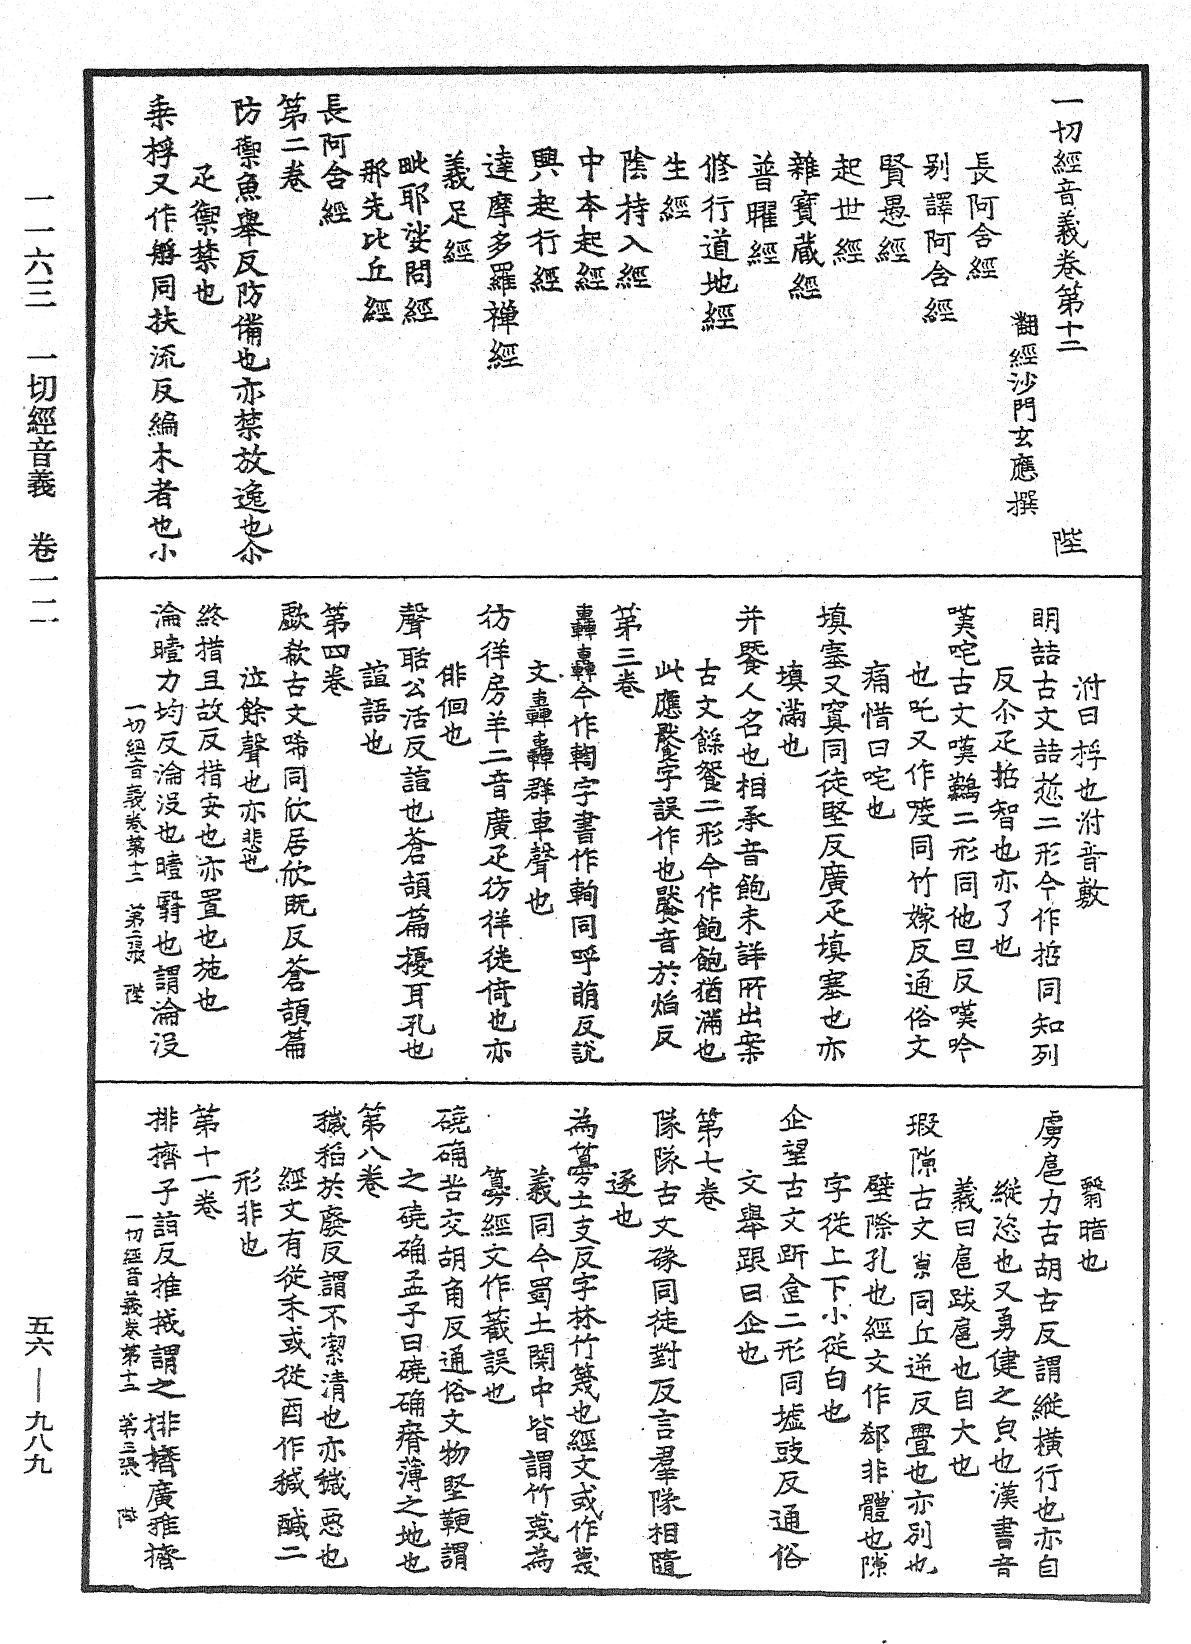 一切經音義卷第十二
陛
翻經沙門玄應撰
長阿含經
別譯阿含經
賢愚經
起世經
雜寶藏經
普曜經
修行道地經
生經
陰持入經
中本起經
興起行經
達摩多羅禪經
義足經
毗耶娑問經
那先比丘經
長阿含經
第二卷
防禦魚舉反防備也亦禁放逸也尒
疋禦禁也
乘桴又作艀同扶流反編木者也小
泭曰桴也泭音敷
明喆古文喆悊二形今作哲同知列
反尒疋哲智也亦了也
嘆咤古文嘆鷬二形同他旦反嘆吟
也吒又作㖡同竹嫁反通俗文
痛惜曰咤也
填塞又窴同徒堅反廣疋填塞也亦
填滿也
并餐人名也相承音飽未詳所出案
古文䬲䭋二形今作飽飽猶滿也
此應餐字誤作也餐音於焰反
第三卷
轟轟今作輷字書作軥同呼萌反說
文轟轟群車聲也
彷徉房羊二音廣疋彷徉徙倚也亦
俳佪也
聲聒公活反諠也蒼頡篇擾耳孔也
諠語也
第四卷
歔欷古文唏同欣居欣既反蒼頡篇
泣餘聲也亦悲也
終措且故反措安也亦置也施也
淪曀力均反淪沒也曀翳也謂淪沒
一切經音義卷第十二　第二張　陛
翳暗也
虜扈力古胡古反謂縱橫行也亦自
縱恣也又勇健之皃也漢書音
義曰扈跋扈也自大也
瑕隙古文𡭴同丘逆反舋也亦別也
壁際孔也經文作郄非體也隙
字從上下小從白也
企望古文跂𠈮二形同墟豉反通俗
文舉跟曰企也
第七卷
隊隊古文𨽵同徒對反言羣隊相隨
逐也
為篣士支反字林竹篾也經文或作篾
義同今蜀土關中皆謂竹篾為
篣經文作簚誤也
磽确苦交胡角反通俗文物堅鞕謂
之磽确孟子曰磽确瘠薄之地也
第八卷
穢稻於廢反謂不潔清也亦穢惡也
經文有從禾或從酉作穢醎二
形非也
第十一卷
排擠子詣反推搣謂之排擠廣雅擠
一切經音義卷第十二　第三張　陛
一一六三　一切經音義　卷一二
五六—九八九